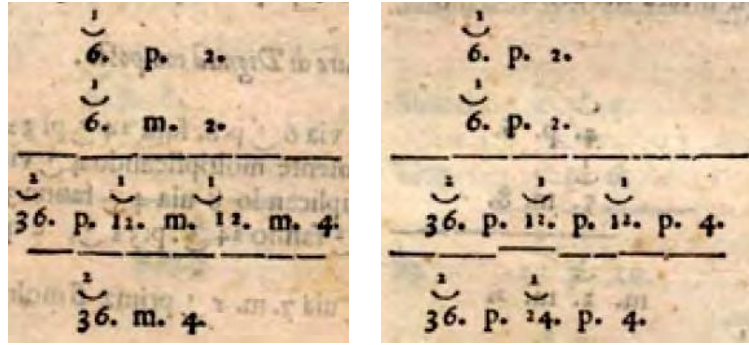 1
6. p. 2.
1
6. m. 2.
2 1 1
36. p. 12. m. 12. m. 4.
2
36. m. 4.
1
6. p. 2.
1
6. p. 2.
2 1 1
36. p. 12. p. 12. p. 4.
2 1
36. p. 24. p. 4.